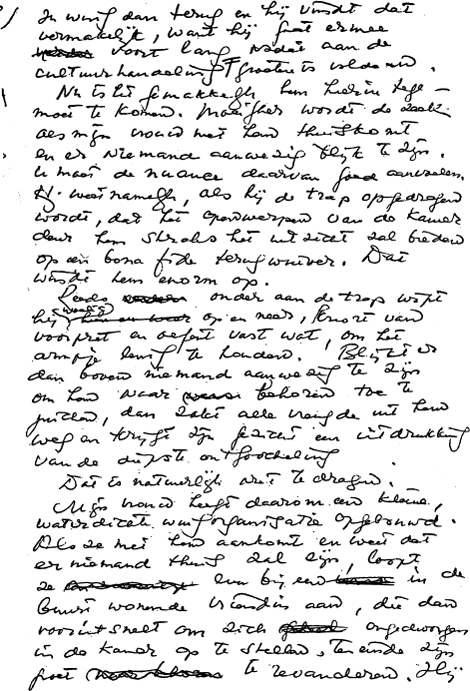 Ik wuif dan terug en hij vindt dat
vermakelijk, want hij gaat ermee
voort lang nadat aan de
cultuurhandeling groots is voldaan.
Nu is het gemakkelijk hem hierin tege-
moet te komen. Moeilijker wordt de zaak
als mijn vrouw met hem thuiskomt
en er niemand aanwezig blijkt te zijn.
U moet de nuance daarvan goed aanvoelen.
Hij weet namelijk, als hij de trap opgedragen
wordt, dat het openwerpen van de kamer
deur hem straks het uitzicht zal bieden
op een bona fide terugwuiver. Dat
windt hem enorm op.
Reeds onder aan de trap wipt
hij op en neer, knort van
voorpret en oefent vast wat, om het
armpje lenig te houden. Blijkt er
dan boven niemand aanwezig te zijn
om hem naar behoren toe te
juichen, dan zakt alle vreugde uit hem
weg en krijgt zijn gezicht een uitdrukking
van de diepste ontgoocheling
Dat is natuurlijk niet te dragen.
Mijn vrouw heeft daarom een kleine,
waterdichte wuiforganisatie opgebouwd.
Als ze met hem aankomt en weet dat
er niemand thuis zal zijn, loopt
ze even bij een in de
buurt wonende vriendin aan, die dan
vooruit snelt om zich ongedwongen
in de kamer op te stellen, ten einde zijn
groet te revancheren. Hij